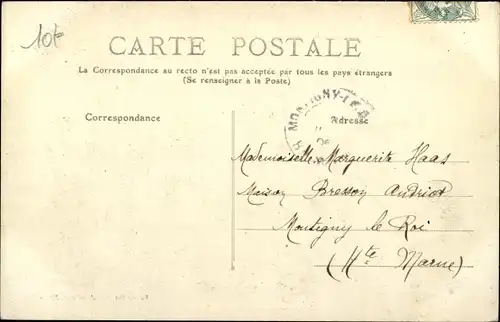 10f
CARTE POSTALE
La Correspondance au recto n'est pas acceptée par tous les pays étrangers
(Se renseigner à la Poste)
MONTIGNY-LE-R
Correspondance
Adresse
Mademoiselle Marguerite Haas
Maison Bresson Andriot
Montigny le Roi
(Hte Marne)